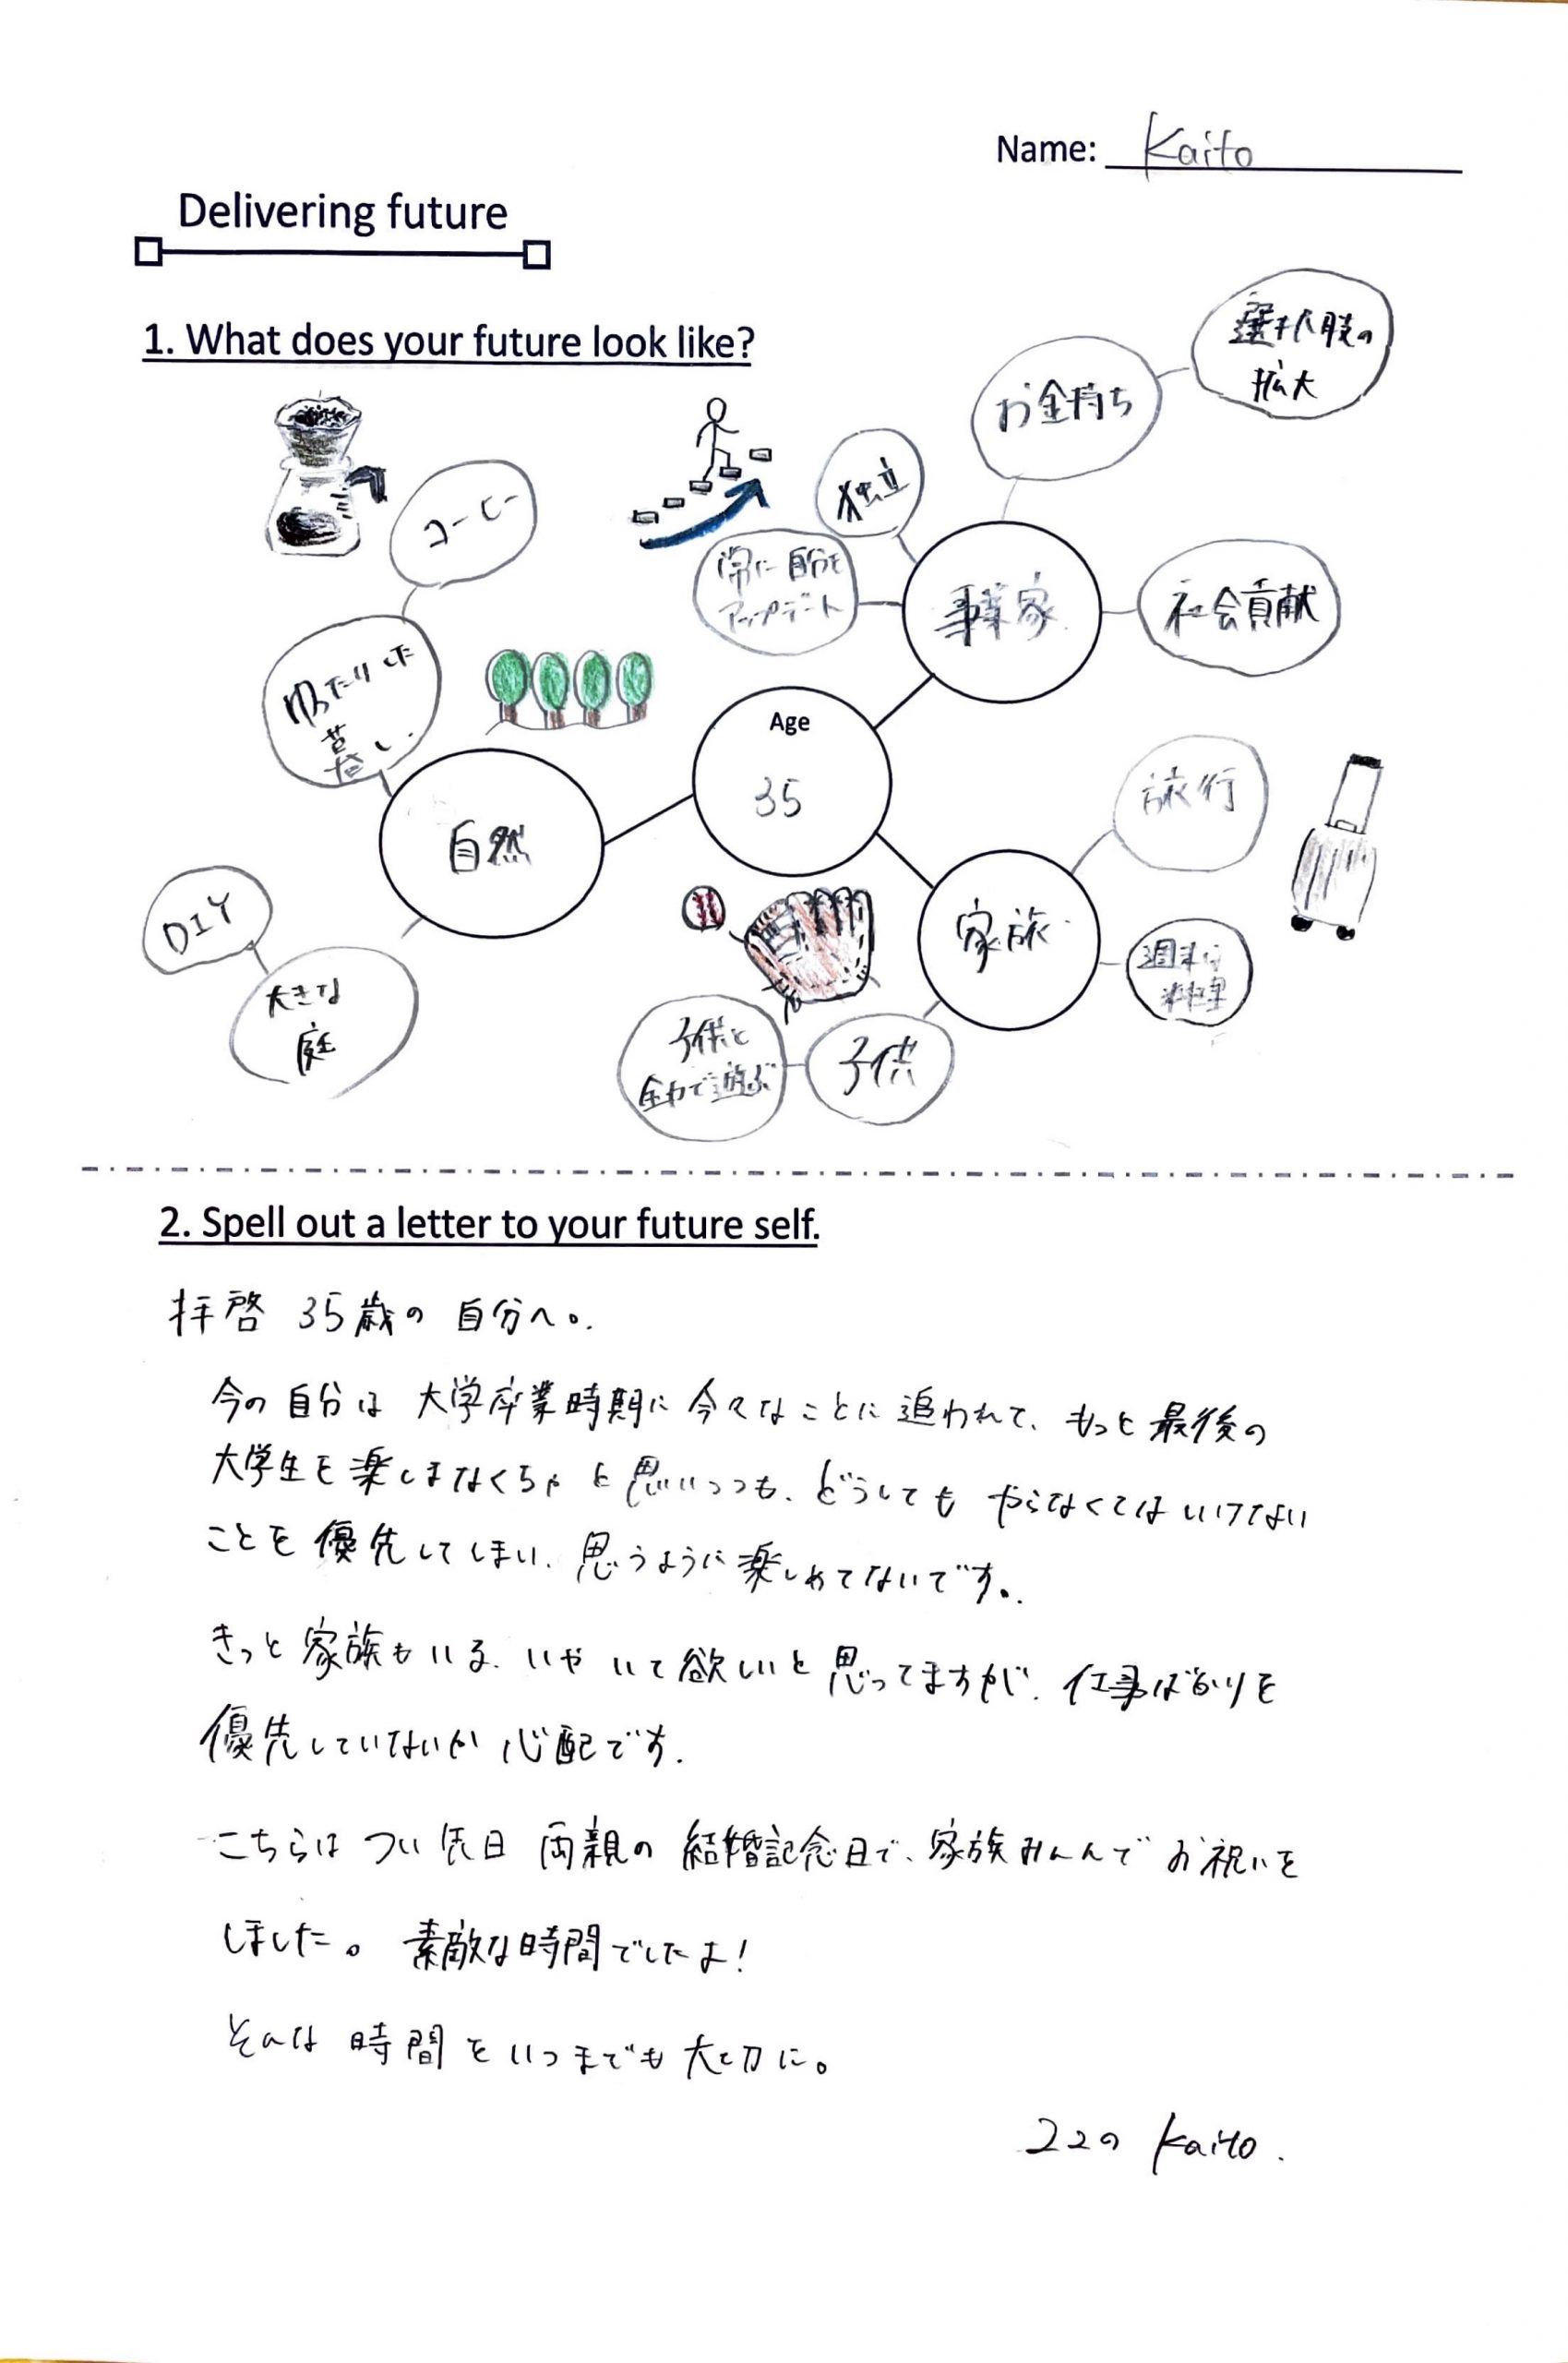 Name: Kaito
Delivering future
1. What does your future look like?
選択肢の
拡大
お金持ち
独立
コーヒー
常に自分を
アップデート
事業家
社会貢献
ゆったりした
暮し.
Age
35
旅行
自然
家族
DIY
大きな
庭
週末は
料理
子供と
全力で遊ぶ
子供
2. Spell out a letter to your future self.
拝啓 35歳の 自分へ。
今の自分は 大学卒業時期に 今々なことに追われて、もっと最後の
大学生を楽しまなくちゃ と思いつつも、どうしても やらなくてはいけない
ことを優先してしまい、思うように楽しめてないです。
きっと家族もいる、いや いて欲しいと思ってますが、仕事ばかりを
優先していないか 心配です.
こちらは つい先日 両親の 結婚記念日で、家族みんなで お祝いを
しました。素敵な時間でしたよ!
そんな 時間を いつまでも 大切に。
22の Kaito.